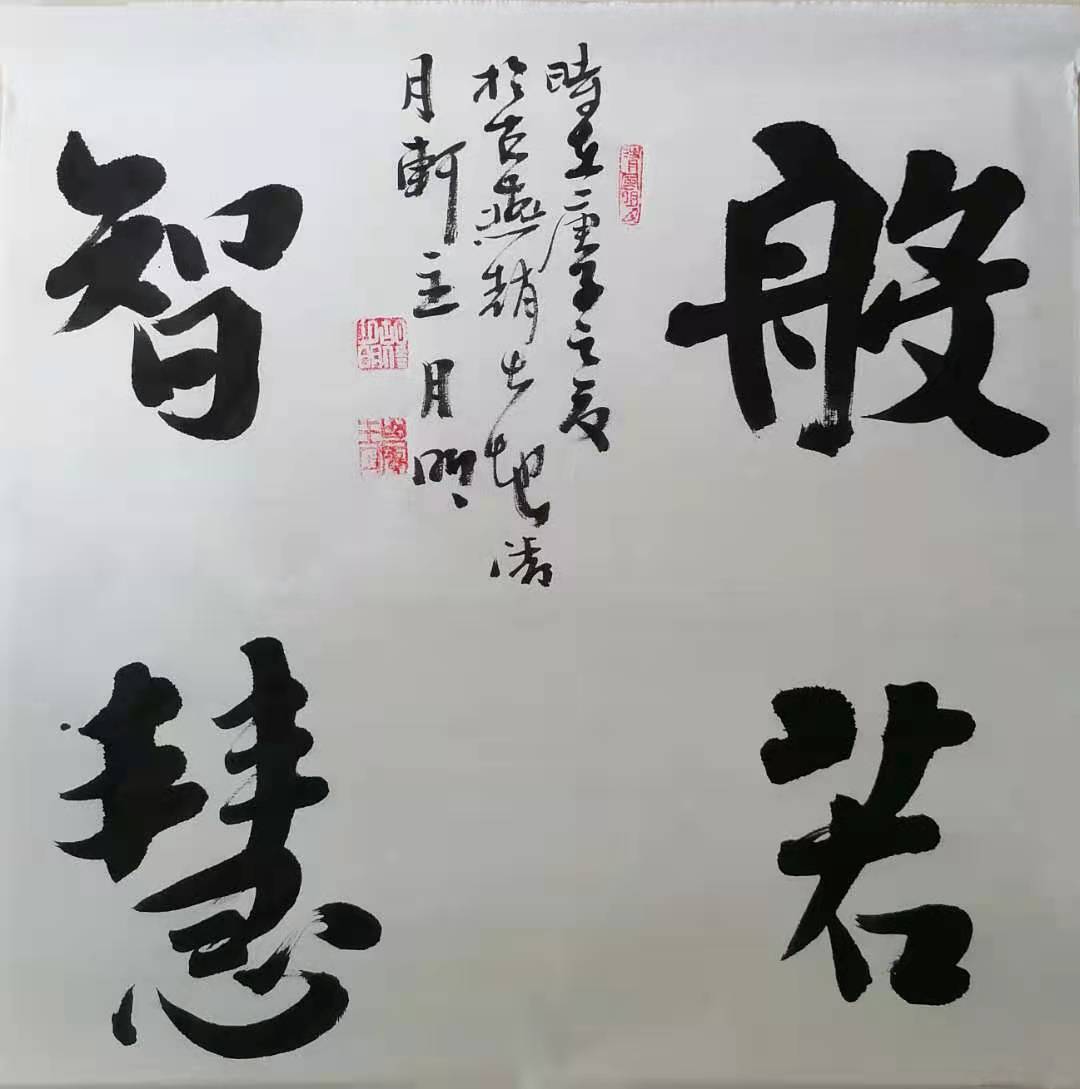 般若
智慧
時在庚子之夏
於古燕趙大地清
月軒主月明